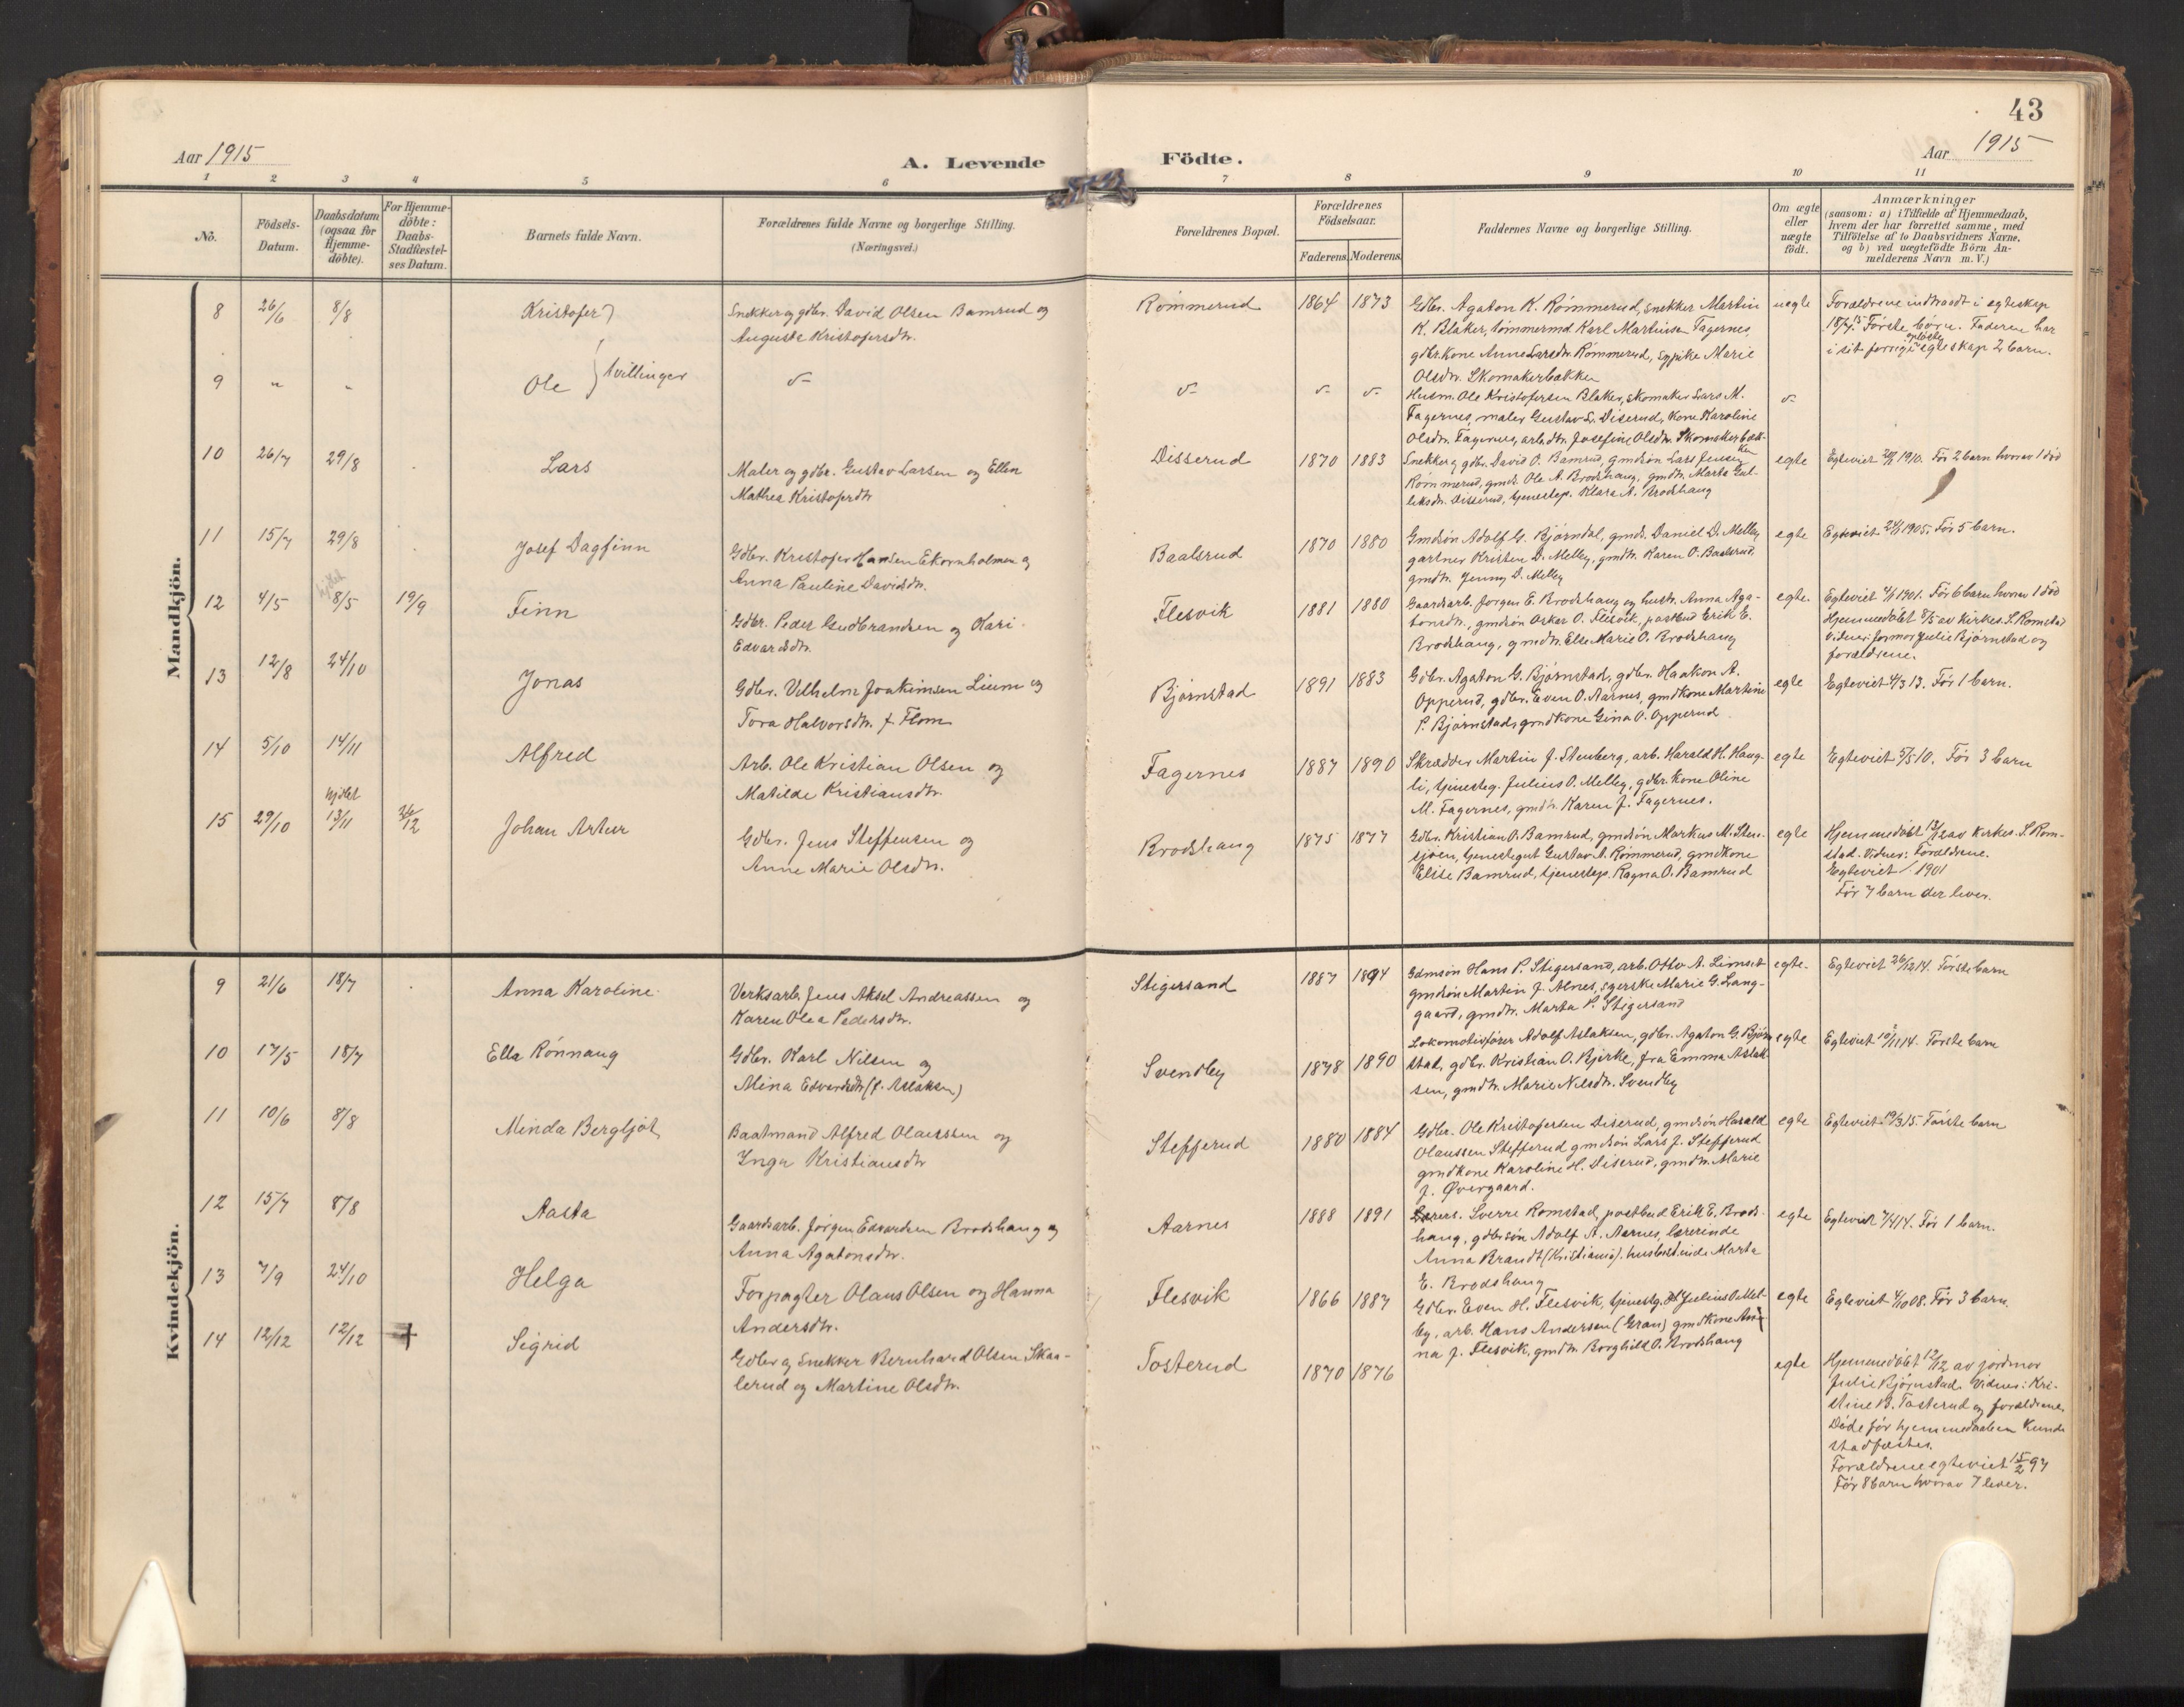 43
Aar 1915
A. Levende
Födte.
Aar 1915
1 2 3 4 5 6 7 8 9 10 11
No.
Födsels-
Datum.
Daabsdatum
(ogsaa for
Hjemme-
döbte).
For Hjemme-
döbte:
Daabs-
Stadfæstel-
ses Datum.
Barnets fulde Navn.
Forældrenes fulde Navne og borgerlige Stilling.
(Næringsvei.)
Forældrenes Bopæl.
Forældrenes
Födselsaar.
Faderens. Moderens.
Faddernes Navne og borgerlige Stilling.
Om ægte
eller
uægte
födt.
Anmærkninger
(saasom: a) i Tilfælde af Hjemmedaab,
hvem der har forrettet samme, med
Tilföielse af to Daabsvidners Navne,
og b) ved uægtefödte Börn An-
melderens Navn m. V.)
Mandkjön.
8 26/6 8/8 Kristofer
Snekker og gdbr. David Olsen Bamrud og
Auguste Kristofersdtr.
Rømmerud 1864 1873
Gdbr. Agaton K. Rømmerud, snekker Martin
K. Blaker, tømmermd Karl Martinsen Fagernes,
gdbr.kone Anne Larsdtr. Rømmerud, sypike Marie
Olsdtr. Skomakerbakken
uegte
Forældrene indtraadt i egteskap
18/7 15. Første børn. Faderen har
i sit forrige opløste egteskap 2 barn.
9 " " Ole } tvillinger
Husm. Ole Kristofersen Blaker, skomaker Lars M.
Fagernes, maler Gustav L. Diserud, kone Karoline
Olsdtr. Fagernes, arb.dtr. Josefine Olsdtr. Skomakerbak-
ken
10 26/7 29/8 Lars
Maler og gdbr. Gustav Larsen og Ellen
Mathea Kristoferdtr
Disserud 1870 1883
Snekker og gdbr. David O. Bamrud, gmdsøn Lars Jensen
Rømmerud, gmds. Ole A. Brodshaug, gmdtr. Marta Gul-
liksdtr. Disserud, tjenestep. Klara A. Brodshaug
egte
1910. Før 2 barn hvorav 1 død
11 15/7 29/8 Josef Dagfinn
Gdbr. Kristofer Hansen Ekornholmen og
Anna Pauline Davidsdtr.
Baalsrud 1870 1880
Gmdsøn Adolf G. Bjørndal, gmds. Daniel D. Melby
gartner Kristen D. Melby, gmdtr. Karen O. Baalsrud,
gmdtr. Jenny D. Melby
egte
Egteviet 24/1 1905. Før 5 barn.
12 4/5 hjdbt 8/5 19/9 Finn
Gdbr. Peder Gudbrandsen og Kari
Edvardsdtr.
Flesvik 1881 1880
Gaardsarb. Jørgen E. Brodshaug og hustr. Anna Aga-
tonsdtr., gmdsøn Oskar O. Flesvik, postbud Erik E.
Brodshaug, gmdtr. Elle Marie O. Brodshaug
egte.
1901. Før 6 barn hvorav 1 død
Hjemmedøbt 8/5 av kirkes. S. Romstad
Vidner: jormor Julie Bjørnstad og
forældrene.
13 12/8 24/10 Jonas
Gdbr. Vilhelm Joakimsen Lium og
Tora Halvorsdtr. f. Flom
Bjørnstad 1891 1883
Gdbr. Agaton G. Bjørnstad, gdbr. Haakon A.
Opperud, gdbr. Even O. Aarnes, gmdkone Martine
P. Bjørnstad, gmdkone Gina O. Opperud.
egte
Egteviet 4/3 13. Før 1 barn.
14 5/10 14/11 Alfred
Arb. Ole Kristian Olsen og
Matilde Kristiansdtr.
Fagernes 1887 1890
Skrædder Martin J. Stenberg, arb. Harald H. Haug-
li, tjenesteg. Julius O. Melby, gdbr.kone Oline
M. Fagernes, gmdtr. Karen J. Fagernes.
egte
Egteviet 5/5 10. Før 3 barn
15 29/10 hjdbt 13/11 26/12 Johan Artur
Gdbr. Jens Steffensen og
Anne Marie Olsdtr.
Brodshaug 1875 1877
Gdbr. Kristian O. Bamrud, gmdsøn Markus M. Sten-
sjøen, tjenestegut Gustav A. Rømmerud, gmdkone
Elise Bamrud, tjenestep. Ragna O. Bamrud
egte
Hjemmedøbt 13/12 av kirkes. S. Rom-
stad. Vidner: Forældrene.
Egteviet / 1901
Før 7 barn der lever.
Kvindekjön.
9 21/6 18/7 Anna Karoline
Verksarb. Jens Aksel Andreassen og
Karen Olea Pedersdtr.
Stigersand 1887 1894
Gdmsøn Hans P. Stigersand, arb. Otto A. Limset
gmdsøn Martin J. Alnes, syerske Marie G. Lang-
gaard, gmdtr. Marta P. Stigersand
egte.
Egteviet 26/12 14. Første barn
10 17/5 18/7 Ella Rønnaug
Gdbr. Karl Nilsen og
Mina Edvardsdtr (f. Aslaksen)
Svendby 1878 1890
Lokomotivfører Adolf Aslaksen, gdbr. Agaton G. Bjørn-
stad, gdbr. Kristian O. Bjerke, fru Emma Aslak-
sen, gmdtr. Marie Nilsdtr. Svendby
egte
Egteviet 10/11 14. Første barn
11 10/6 8/8 Minda Bergljot
Baatmand Alfred Olaussen og
Inga Kristiansdtr
Stefferud 1880 1884
Gdbr. Ole Kristofersen Diserud, gmdsøn Harald
Olaussen Stefferud gmdsøn Lars J. Stefferud
gmdkone Karoline H. Diserud, gmdtr. Marie
J. Øvergaard.
egte
Egteviet 19/3 15. Første barn
12 15/7 8/8 Aasta
Gaardsarb. Jørgen Edvardsen Brodshaug og
Anna Agatonsdtr.
Aarnes 1888 1891
Sverre Romstad, postbud Erik E. Brods-
haug, gdbrsøn Adolf A. Aarnes, lærerinde
Anna Brandt (Kristiania). husbestinde Marta
E. Brodshaug
egte
Egteviet 7/4 14. Før 1 barn.
13 7/9 24/10 Helga
Forpagter Olaus Olsen og Hanna
Andersdtr.
Flesvik 1866 1887
Gdbr. Even H. Flesvik, tjenestg. Julius O. Mel-
by, arb. Hans Andersen (Gran) gmdkone An-
na J. Flesvik, gmdtr. Borghild O. Brodshaug
egte
Egteviet 4/10 08. Før 3 barn.
14 12/12 12/12 + Sigrid
Gdbr og Snekker Bernhard Olsen Skaa-
lerud og Martine Olsdtr.
Tosterud 1870 1876
egte
Hjemmedøbt 12/12 av jordmor
Julie Bjørnstad. Vidner: Kri-
stine B. Tosterud og forældrene.
Døde før hjemmedaaben kunde
stadfæstes.
Forældrene egteviet 15/2 97
Før 8 barn hvorav 7 lever.